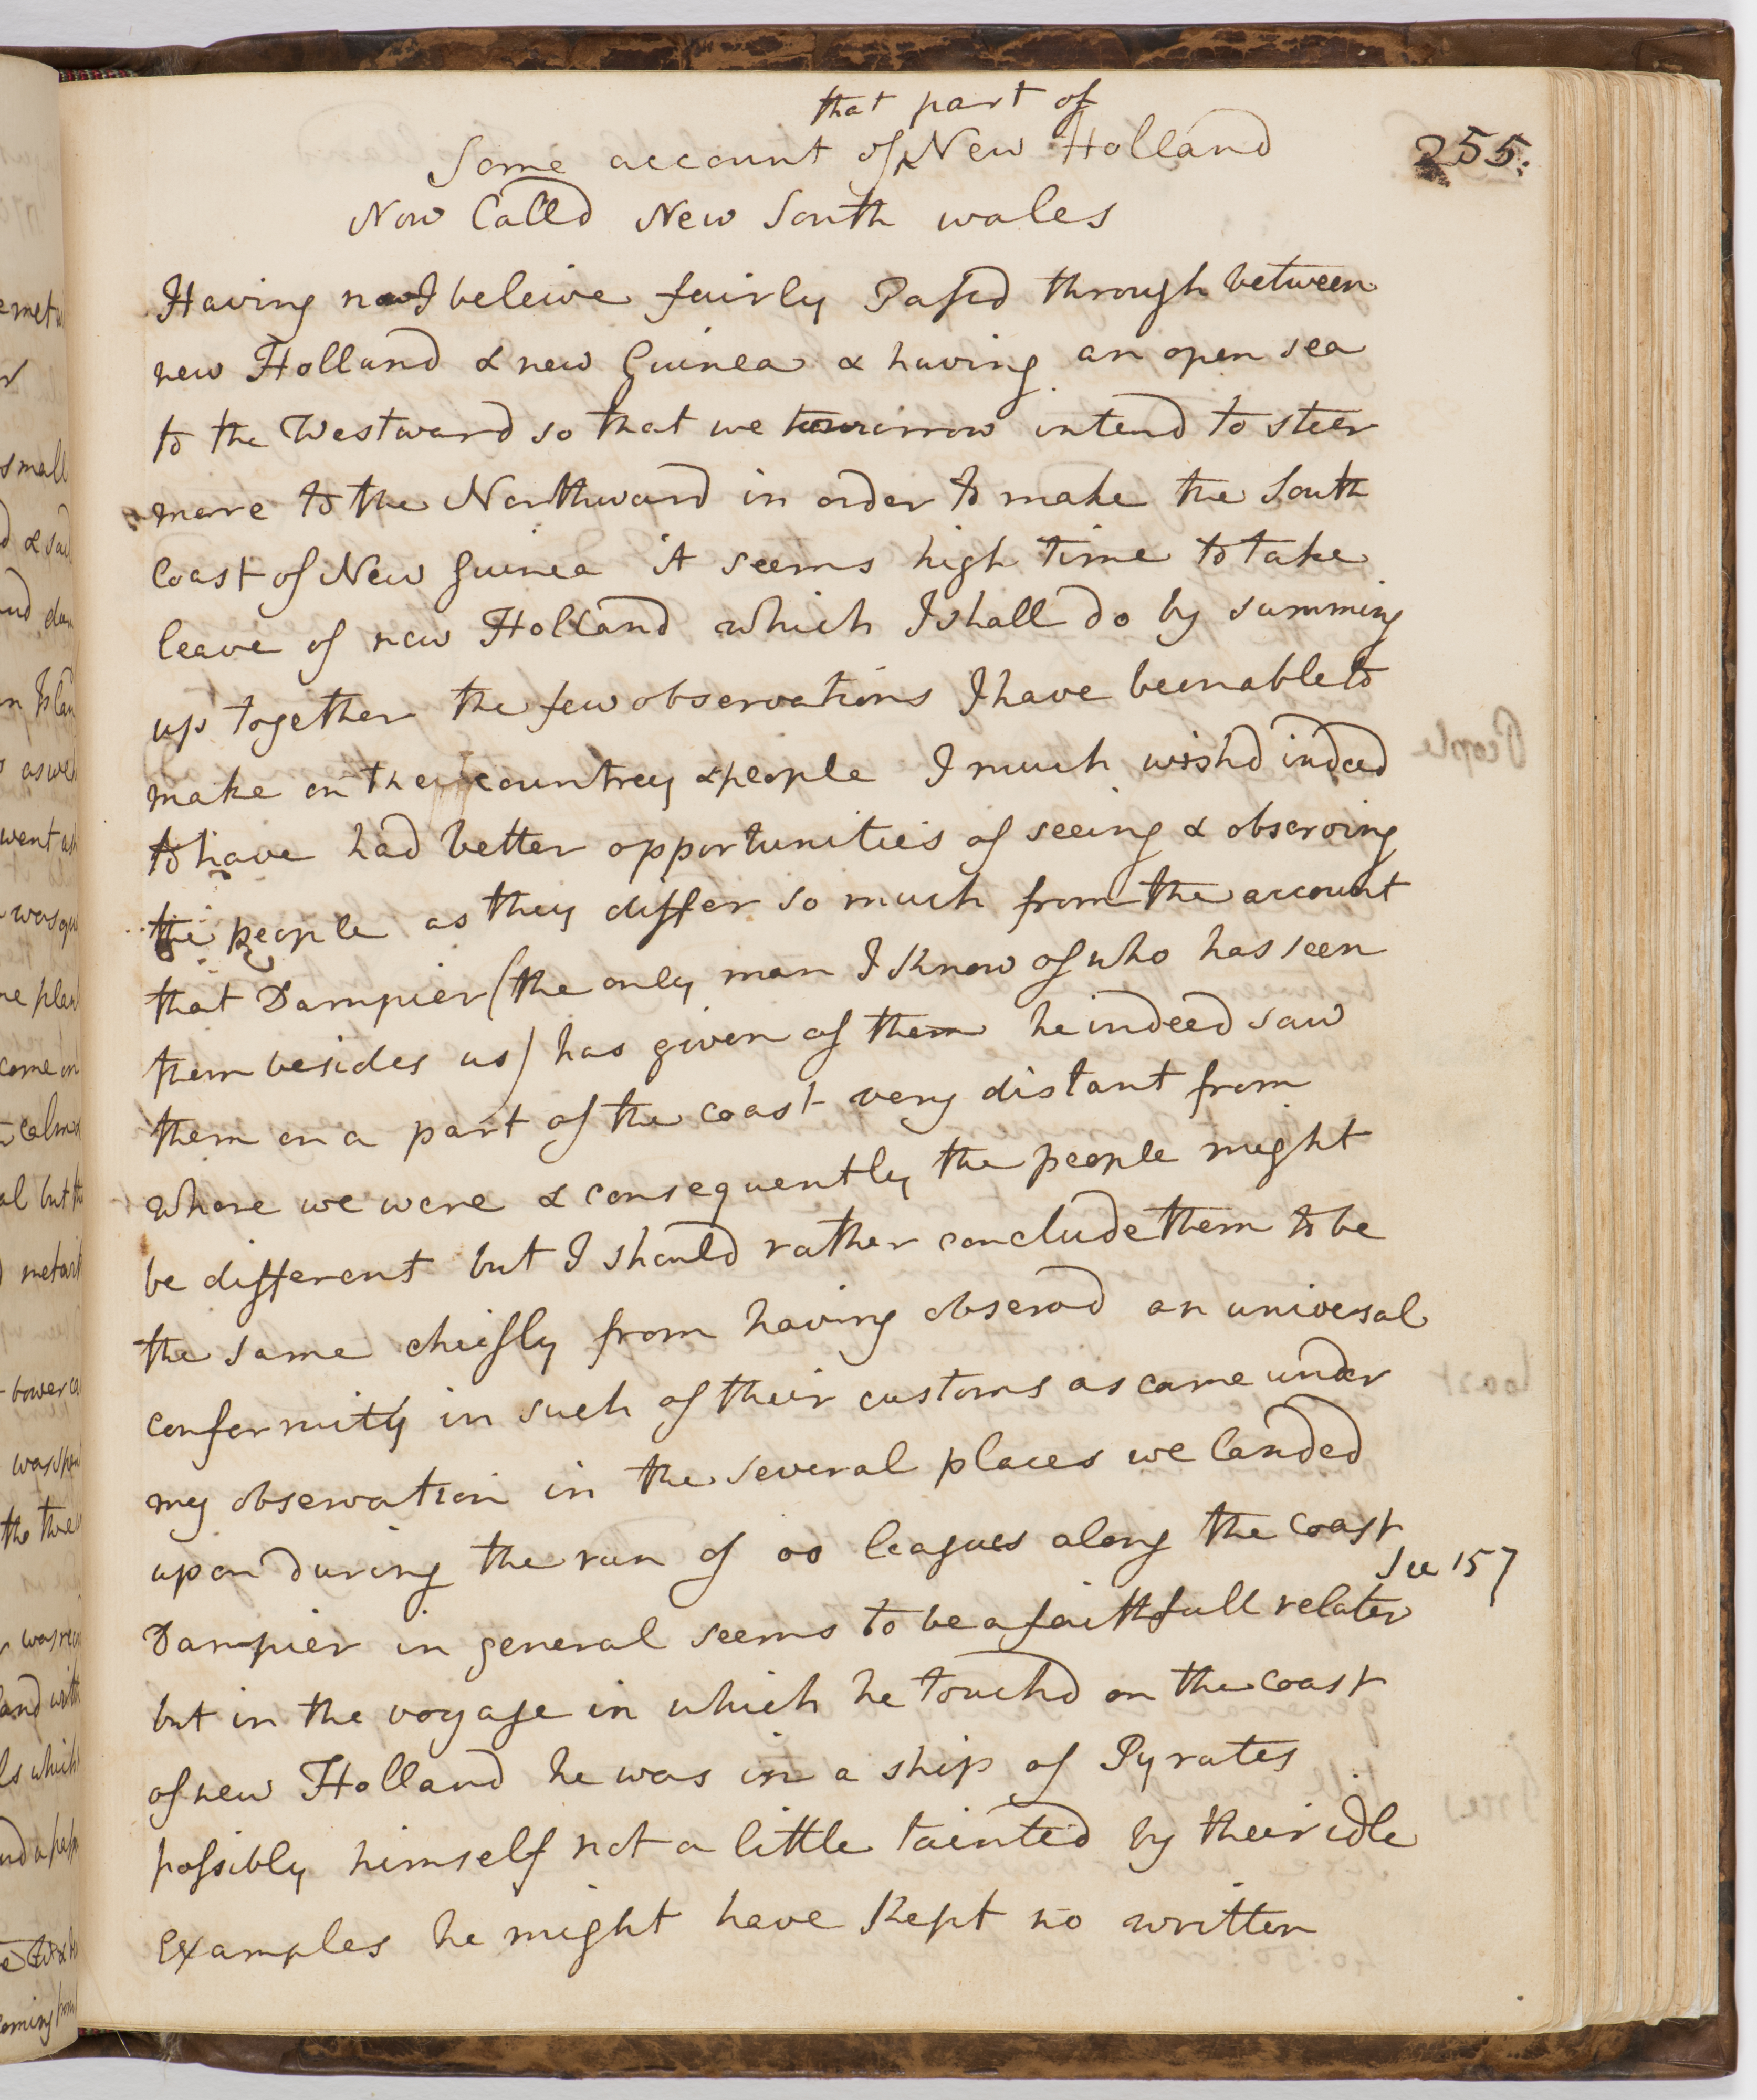 that part of
Some account of ^ New Holland
255.
Now Calld New South wales
Having now I beleive fairly Passd through between
new Holland & new Guinea & having an open sea
to the Westward so that we tomorrow intend to steer
more to the Northward in order to make the South
Coast of New Guinea it seems high time to take
leave of new Holland which I shall do by summing
up together the few observations I have been able to
make on the countrey & people I much wishd indeed
to have had better opportunities of seeing & observing
the people as they differ so much from the account
that Dampier (the only man I know of who has seen
them besides us) has given of them he indeed saw
them on a part of the coast very distant from
where we were & consequently the people might
be different but I should rather conclude them to be
the same chiefly from having observd an universal
conformity in such of their customs as came under
my observation in the several places we landed
upon during the run of 00 leagues along the coast
See 157
Dampier in general seems to be a faithfull relater
but in the voyage in which he touchd on the coast
of new Holland he was in a ship of Pyrates
possibly himself not a little tainted by their idle
examples he might have kept no written
small
went
come on
bower
was
the
which
coming